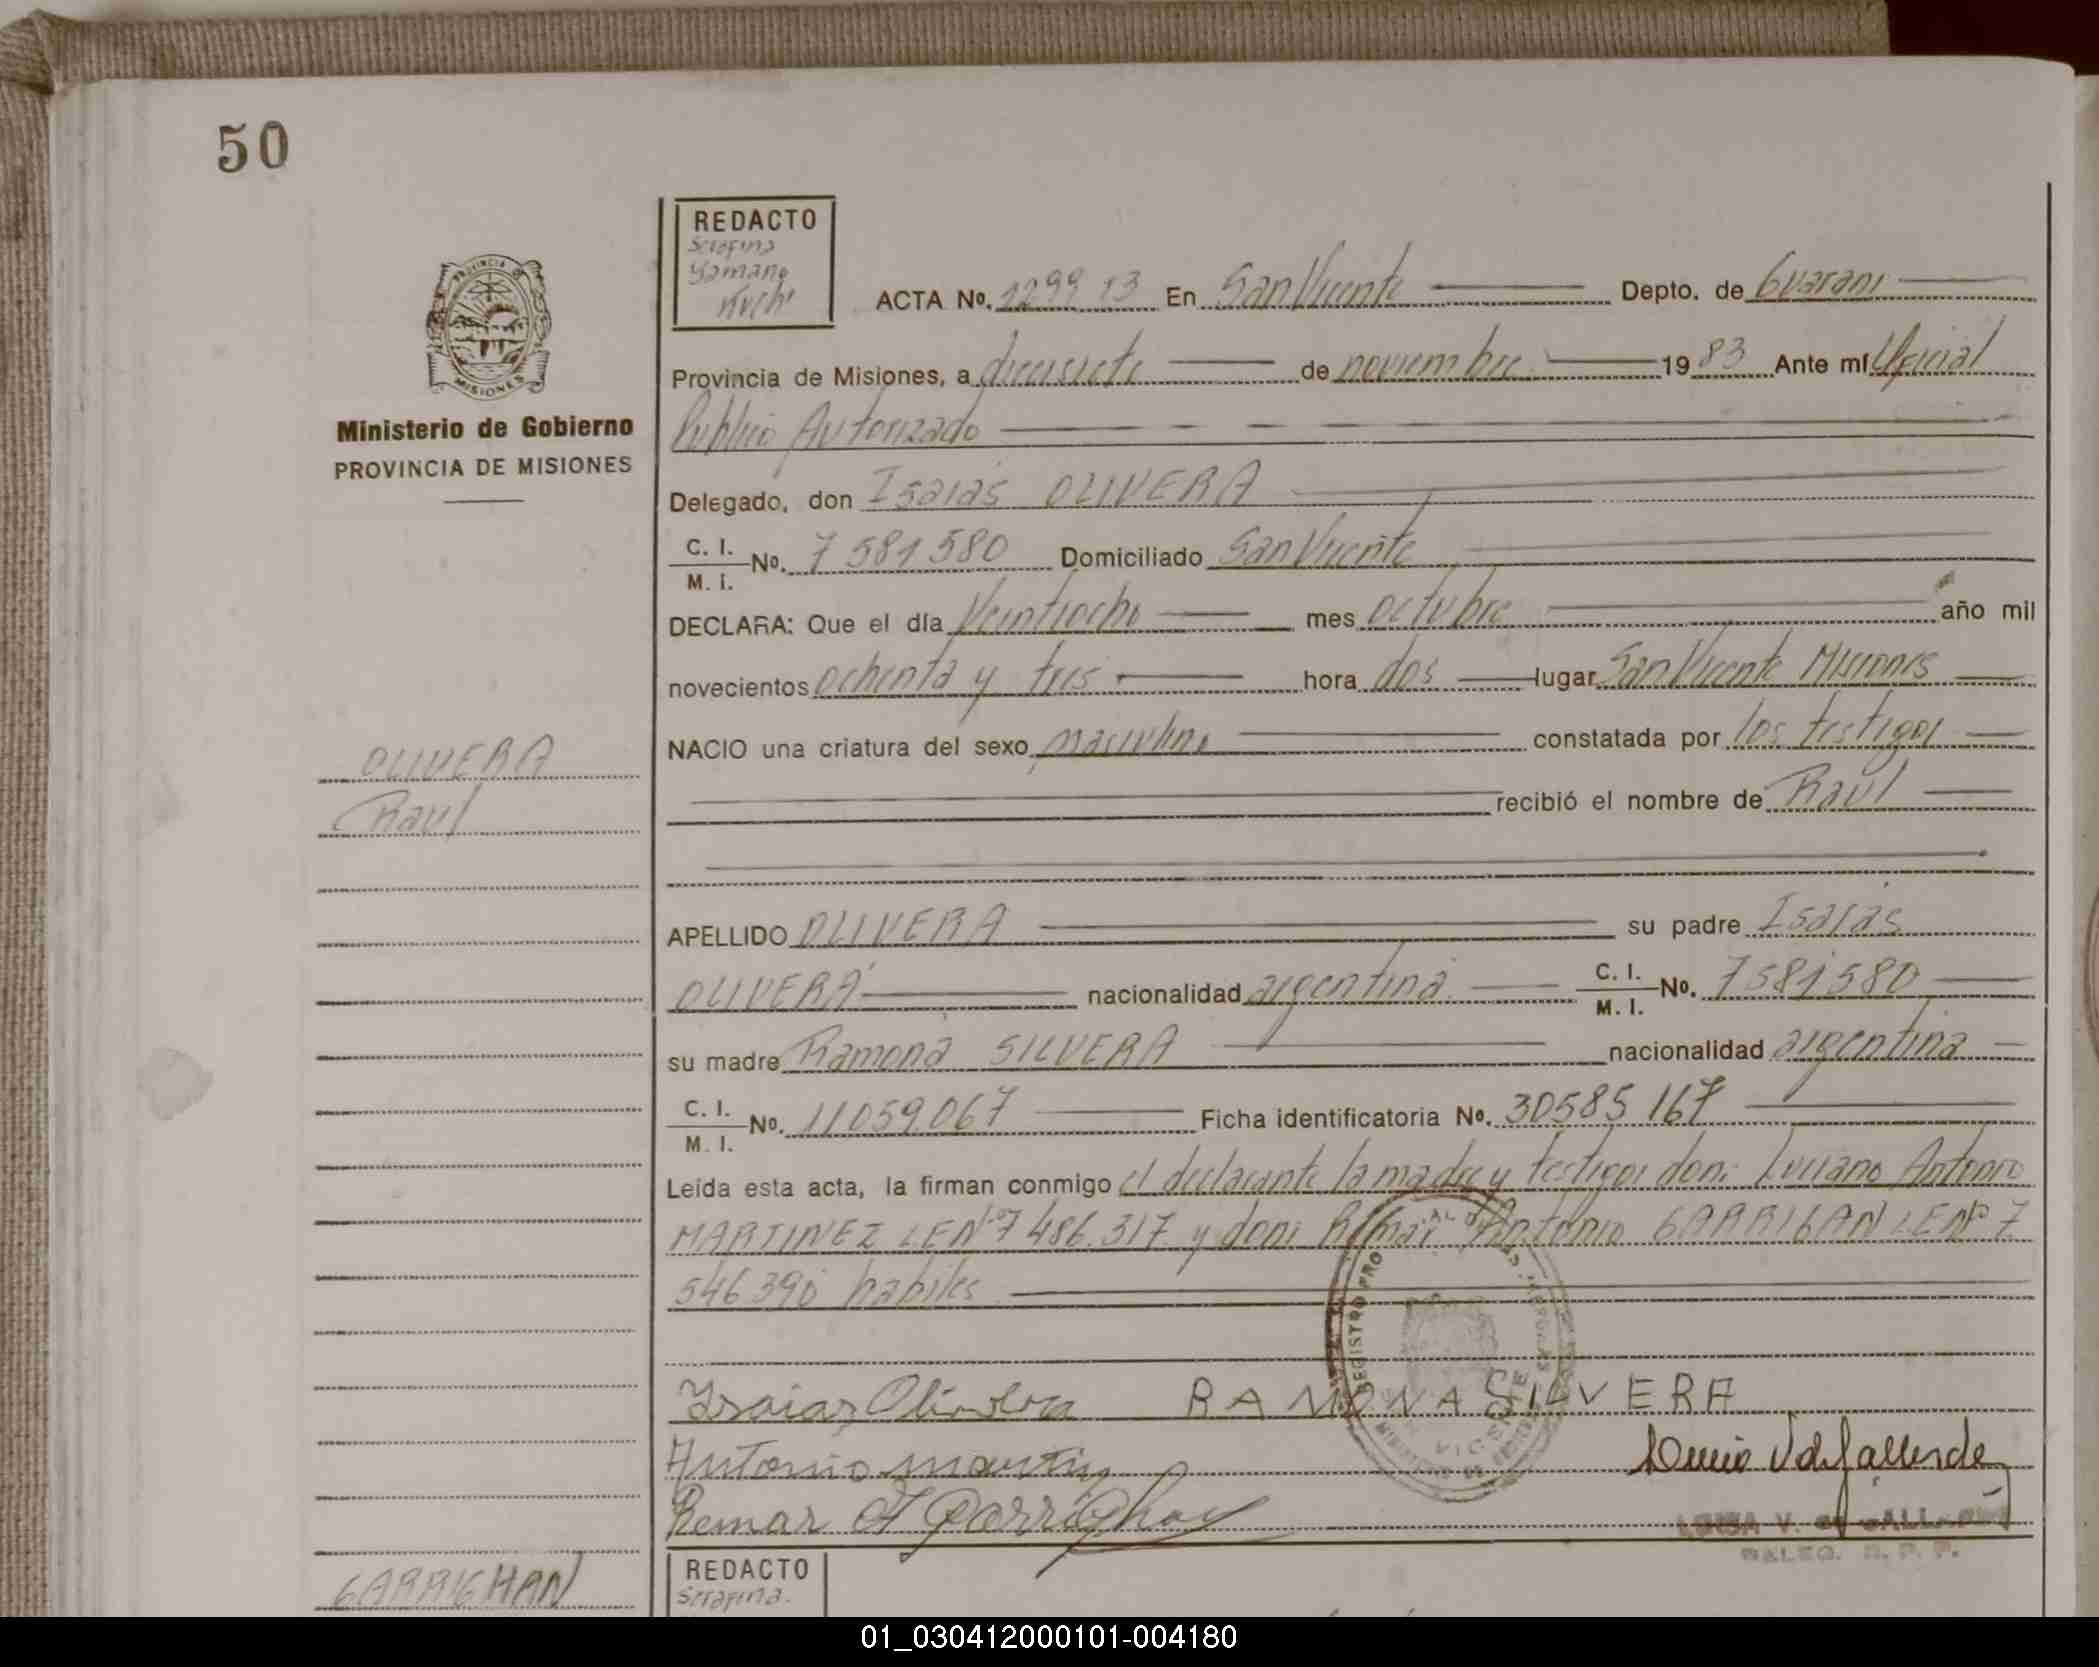 50
REDACTO
Serafina
Yamano
ACTA No. 1299 13 En San Vicente Depto. de Guarani
Provincia de Misiones, a diecisiete de noviembre 1983 Ante mí Oficial
PROVINCIA DE
MISIONES
Ministerio de Gobierno
PROVINCIA DE MISIONES
Publico Autorizado
Delegado, don Isaias OLIVERA
C. I.
M. I. No. 7 581 580 Domiciliado San Vicente
DECLARA: Que el día Veintiocho mes octubre año mil
novecientos ochenta y tres hora dos lugar San Vicente Misiones
NACIO una criatura del sexo masculino constatada por los testigos
OLIVERA
Raul
recibió el nombre de Raul
APELLIDO OLIVERA su padre Isaias
OLIVERA nacionalidad argentina C. I.
M. I. No. 7581580
su madre Ramona SILVERA nacionalidad argentina
C. I.
M. I. No. 11059.067 Ficha identificatoria No. 30585 167
Leída esta acta, la firman conmigo el declarante la madre y testigos don: Luciano Antonio
MARTINEZ LE Nº 7 486.317 y don: Remar Antonio GARRIGAN LE Nº 7.
546 390 habiles
Isaias Olivera RAMONA SILVERA
Antonio Martinez
Remar A Garrighan
REGISTRO PRO
VICENTE
REDACTO
Serafina.
GARRIGHAN
01_030412000101-004180